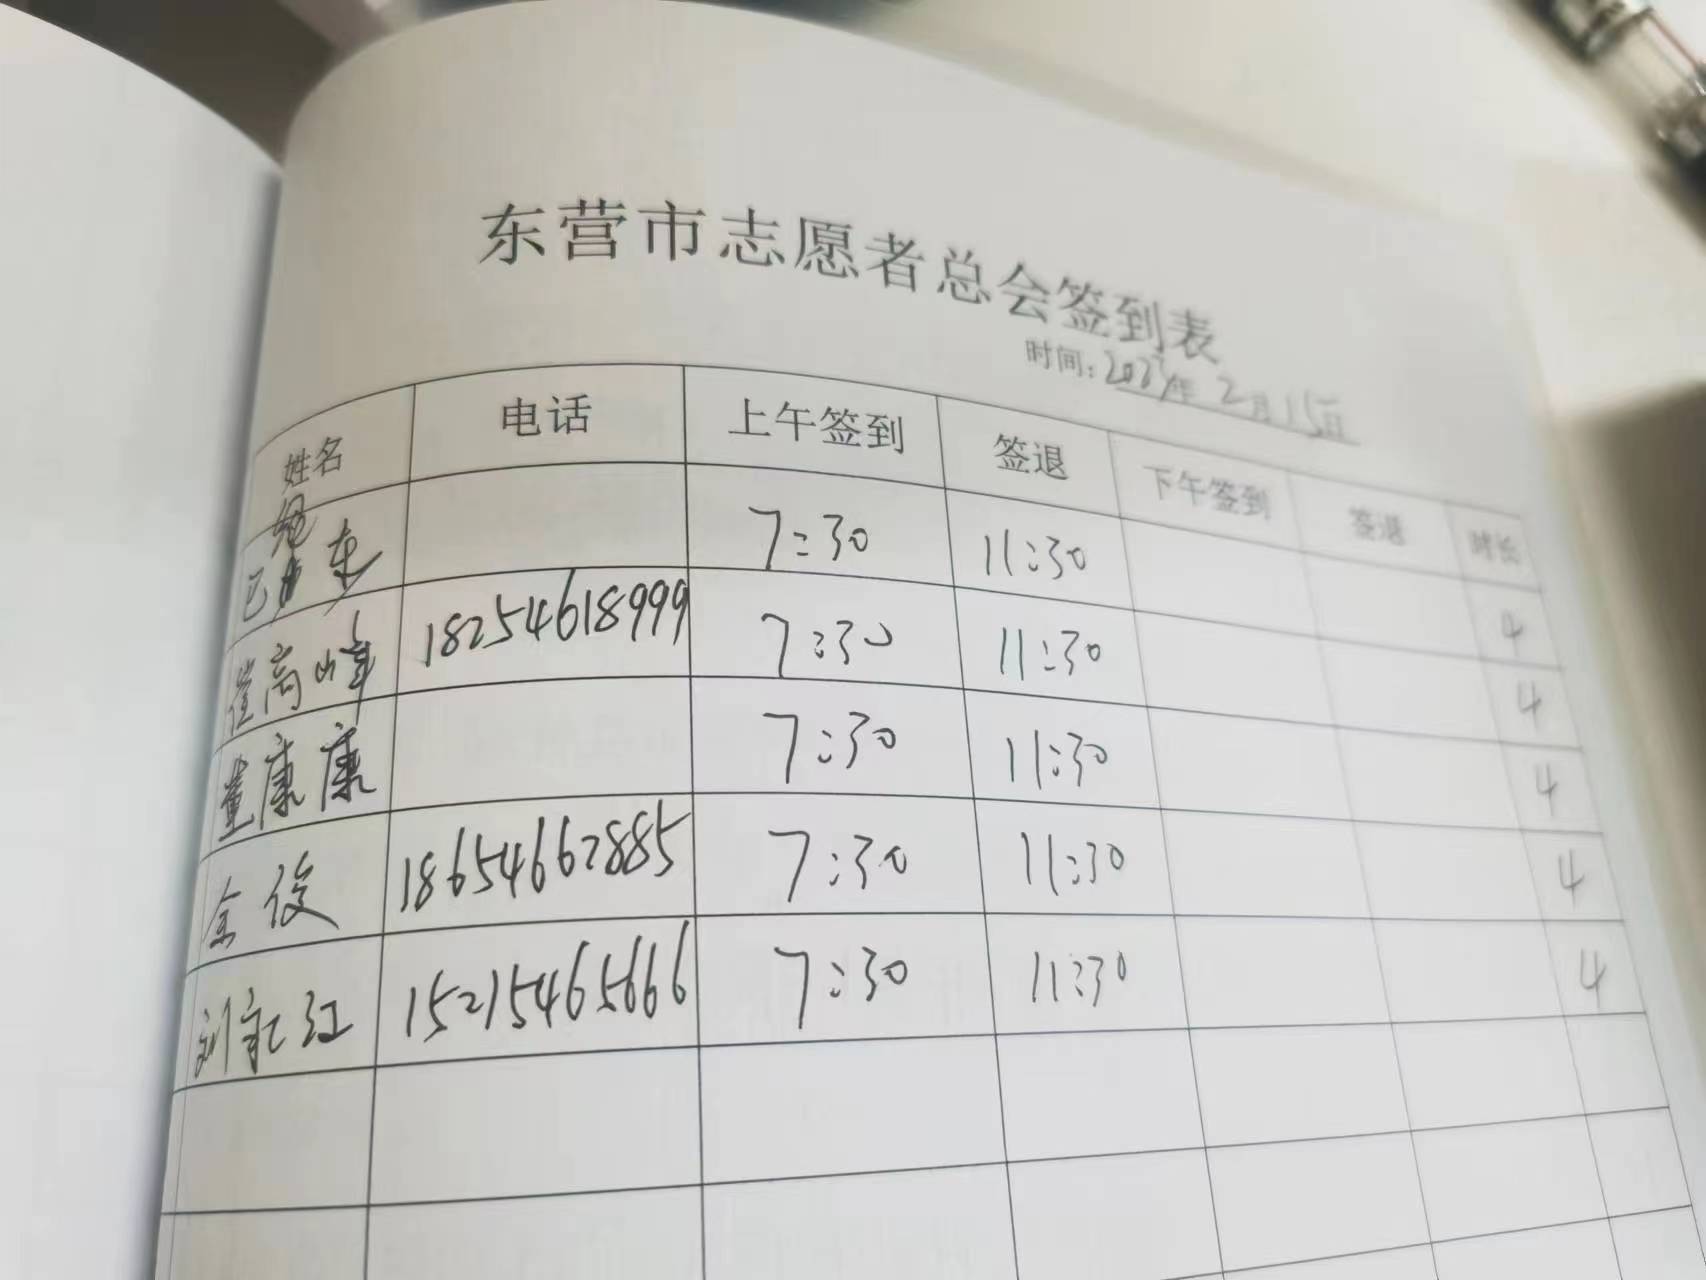 东营市志愿者总会签到表
时间: 年 2月15日
姓名 电话 上午签到 签退 下午签到 签退 时长
东 7:30 11:30 4
高峰 18254618999 7:30 11:30 4
董康康 7:30 11:30 4
俊 18654662885 7:30 11:30 4
刘 红 15215465666 7:30 11:30 4